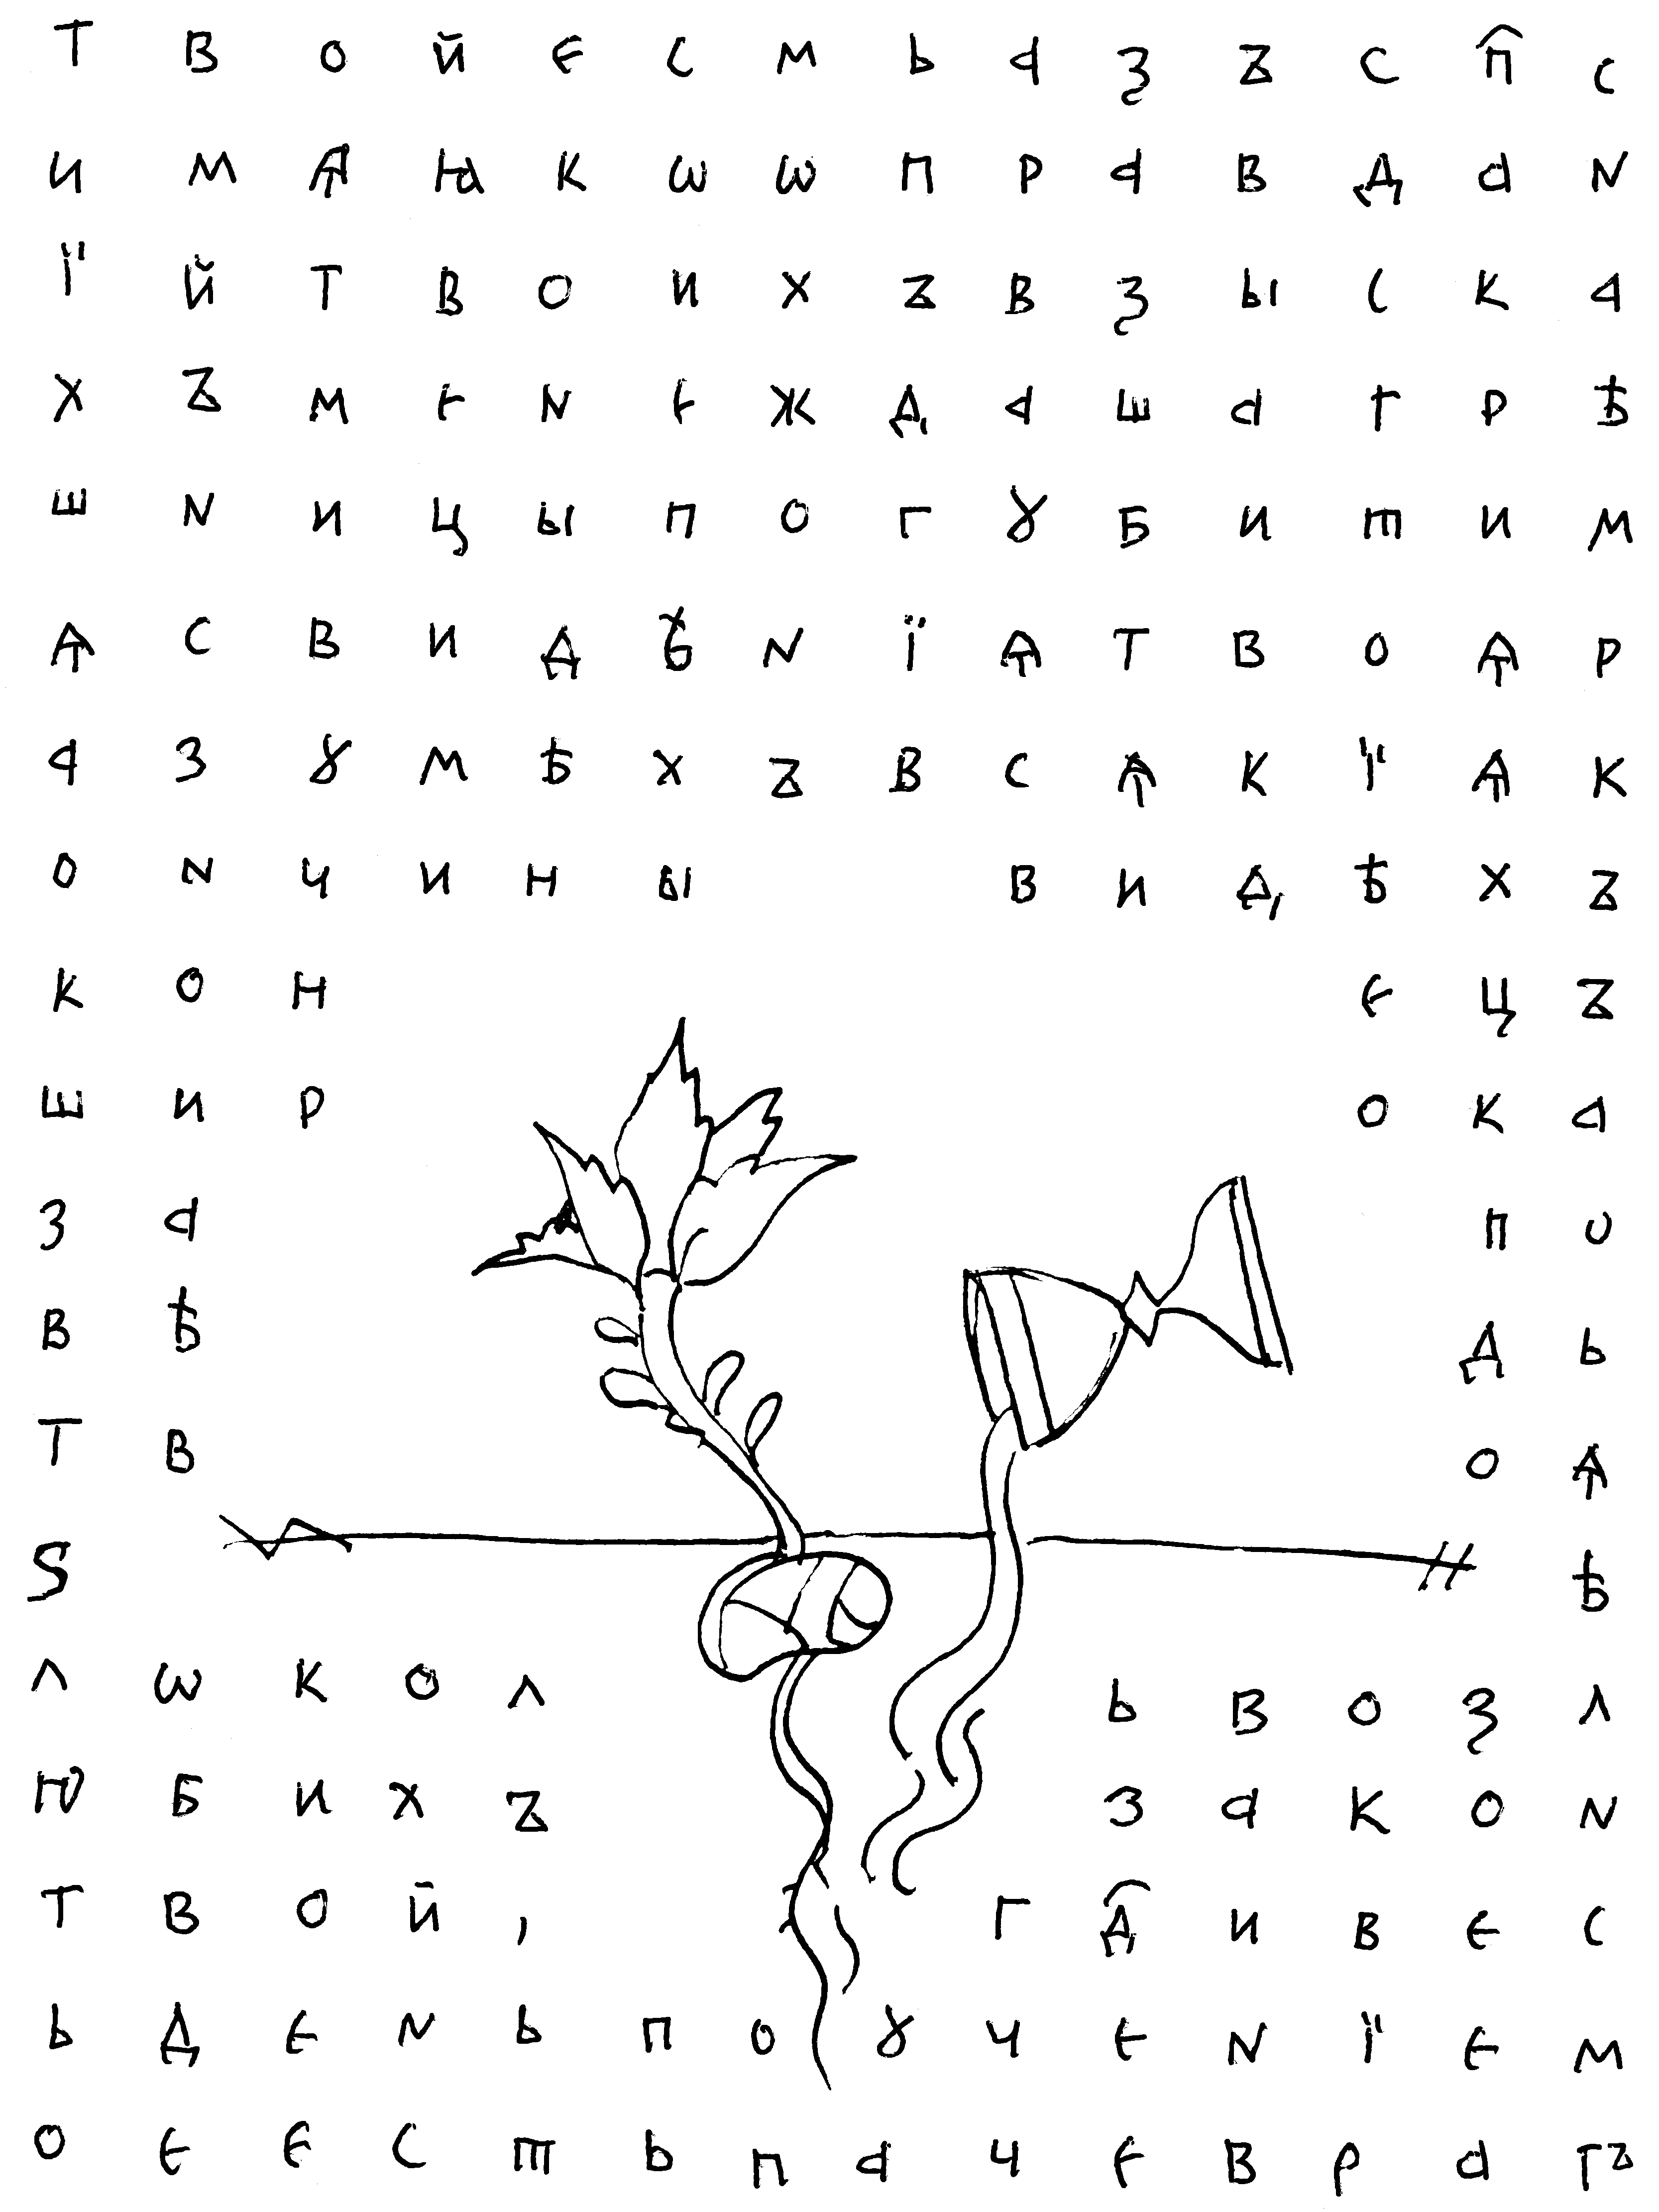 Т В О Й Є С М Ь А З Ъ С П҃ С
И М Ѧ Ꙗ К Ѡ Ѡ П Р А В Д А N
Ї Й Т В О И Х Ъ В З Ы С К А
Х Ъ М Є N Є Ж Д А Ш А Г Р Ѣ
Ш N И Ц Ы П О Г Ꙋ Б И Т И М
Ѧ С В И Д Ѣ N Ї Ѧ Т В О Ѧ Р
А З Ꙋ М Ѣ Х Ъ В С Ѧ К Ї Ѧ К
О N Ч И Н Ы В И Д Ѣ Х Ъ
К О Н Є Ц Ъ
Ш И Р О К А
З А П О
В Ѣ Д Ь
Т В О Ѧ
Ѕ Ѣ
Л Ѡ К О Л Ь В О З Л
Ю Б И Х Ъ З А К О N
Т В О Й , Г Д҃ И В Є С
Ь Д Є N Ь П О Ꙋ Ч Є N Ї Є М
О Є Є С Т Ь П А Ч Є В Р А ГЪ